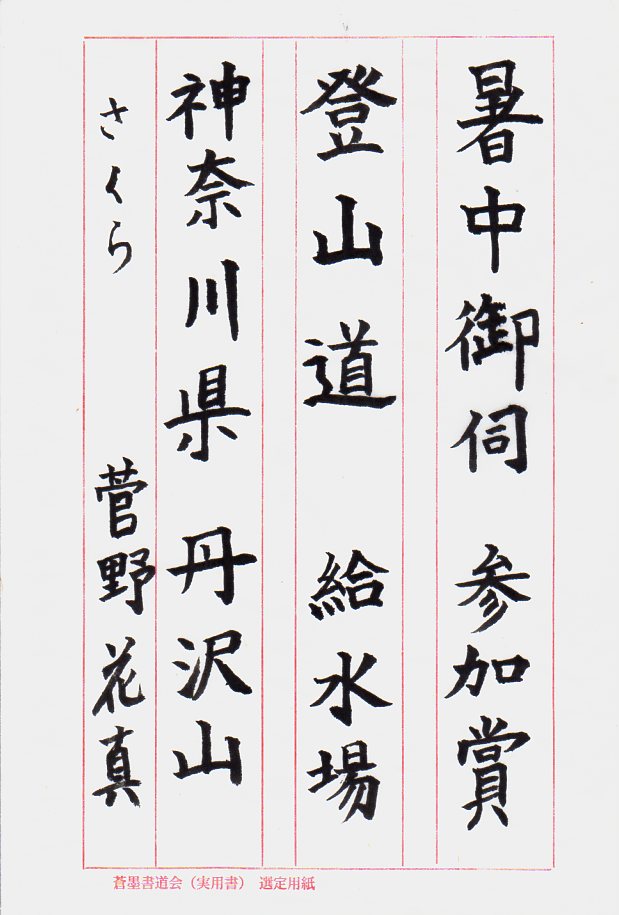 暑中御伺 参加賞
登山道 給水場
神奈川県 丹沢山
さくら 菅野花真
蒼墨書道会（実用書） 選定用紙